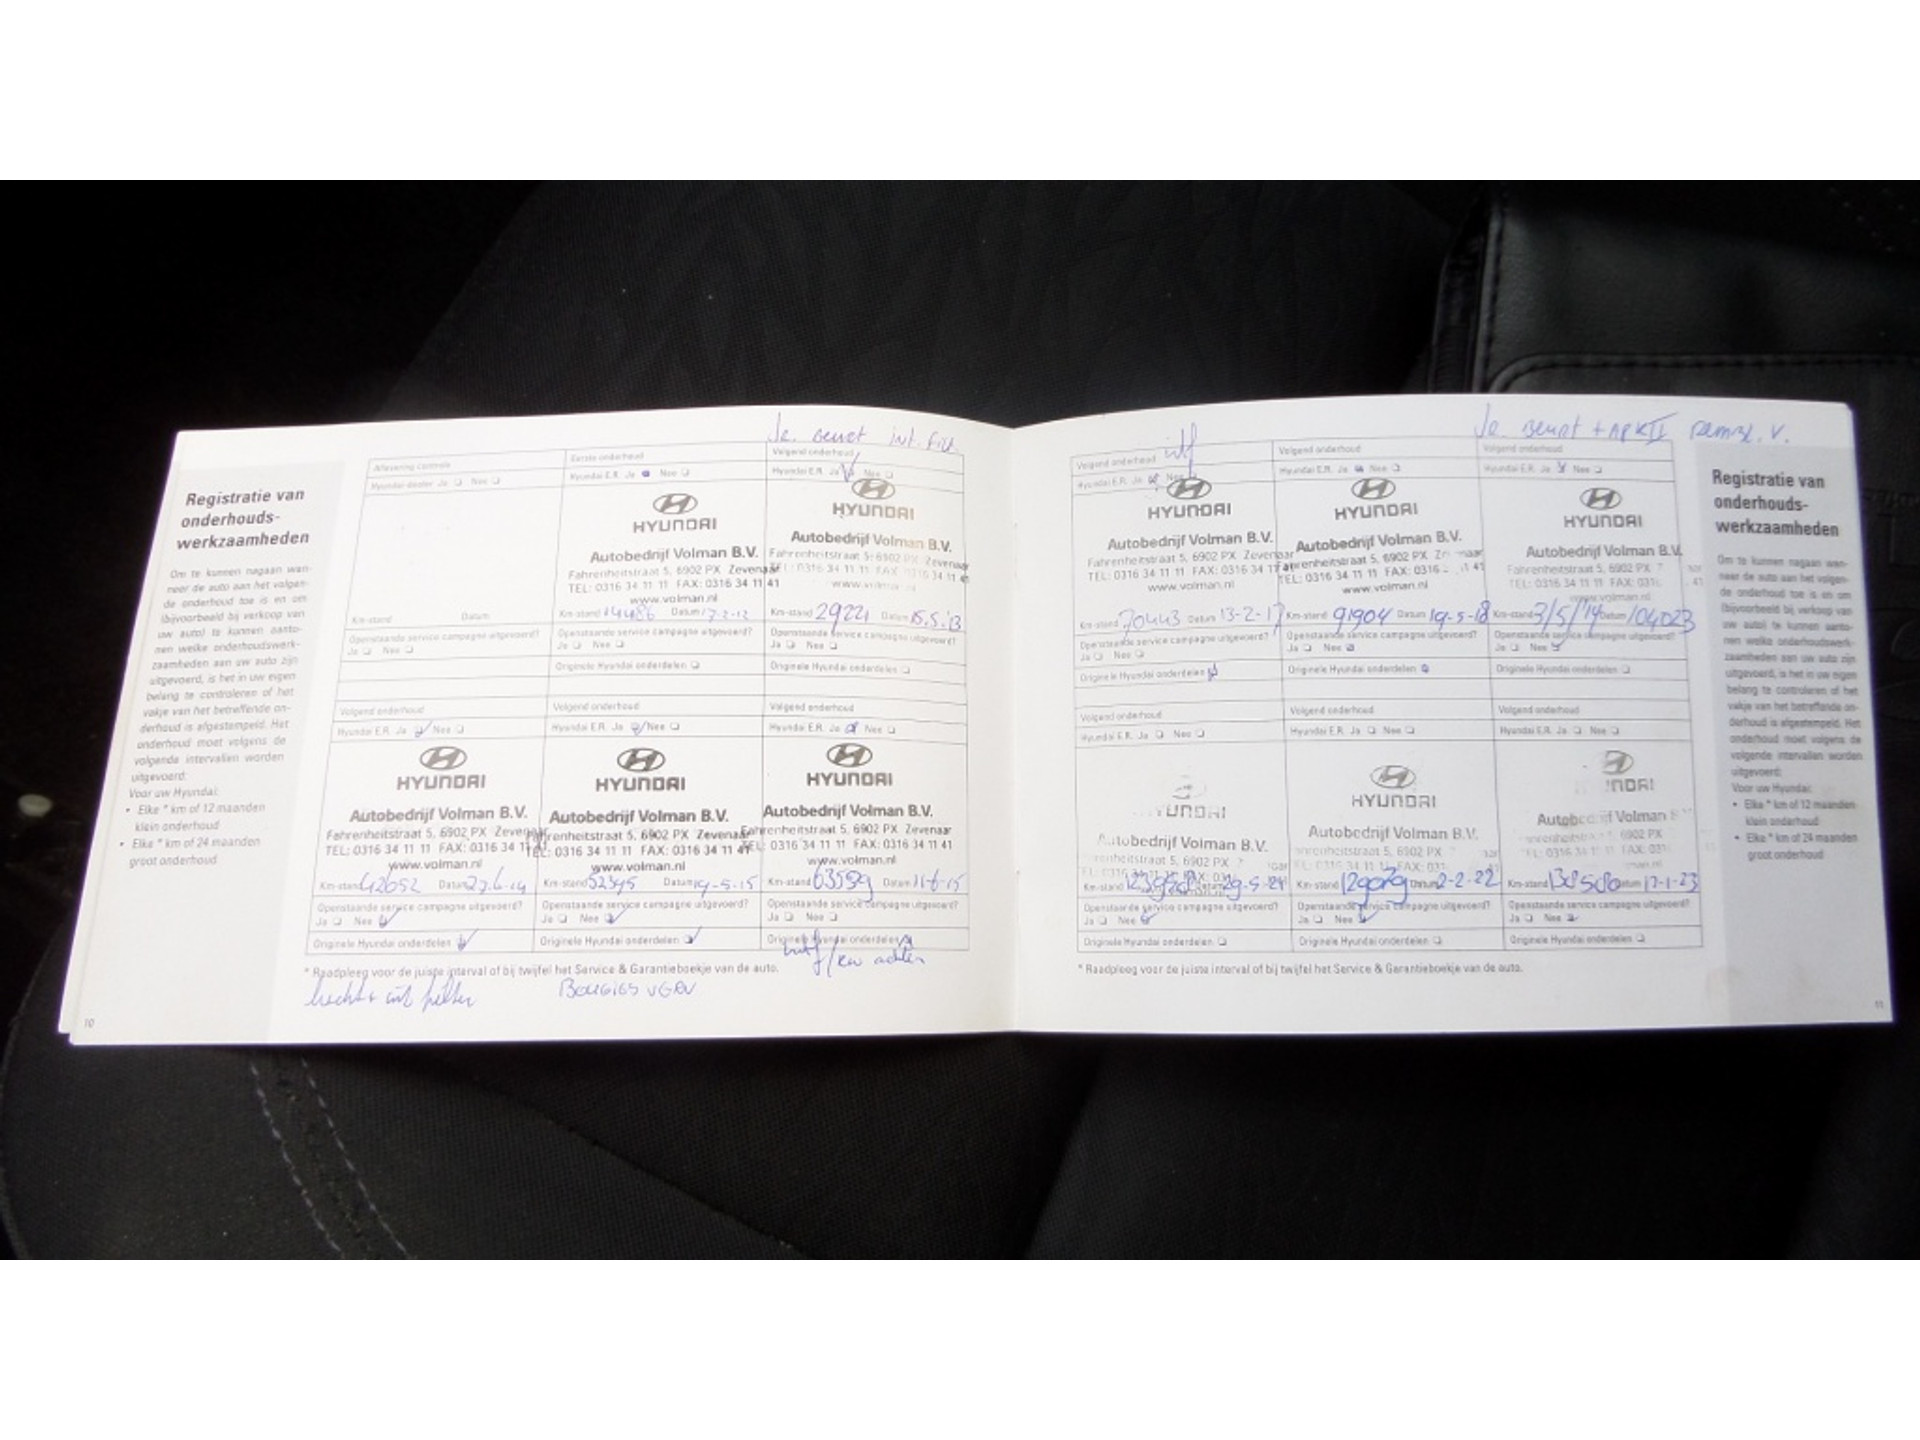 Je. Beurt int. Fil.
Registratie van
onderhouds-
werkzaamheden
Om te kunnen nagaan wan-
neer de auto aan het volgen-
de onderhoud toe is en om
(bijvoorbeeld bij verkoop van
uw auto) te kunnen aanto-
nen welke onderhoudswerk-
zaamheden aan uw auto zijn
uitgevoerd, is het in uw eigen
belang te controleren of het
vakje van het betreffende on-
derhoud is afgestempeld. Het
onderhoud moet volgens de
volgende intervallen worden
uitgevoerd:
Voor uw Hyundai:
• Elke * km of 12 maanden
klein onderhoud
• Elke * km of 24 maanden
groot onderhoud
Aflevering controle
Hyundai-dealer Ja Nee
Km-stand Datum
Openstaande service campagne uitgevoerd?
Ja Nee
Eerste onderhoud
Hyundai E.R. Ja Nee
HYUNDAI
Autobedrijf Volman B.V.
Fahrenheitstraat 5, 6902 PX Zevenaar
TEL: 0316 34 11 11 FAX: 0316 34 11 41
www.volman.nl
Km-stand 14486 Datum 17-2-12
Openstaande service campagne uitgevoerd?
Ja Nee
Originele Hyundai onderdelen
Volgend onderhoud
Hyundai E.R. Ja Nee
HYUNDAI
Autobedrijf Volman B.V.
Fahrenheitstraat 5, 6902 PX Zevenaar
TEL: 0316 34 11 11 FAX 0316 34 11 41
www.volman.nl
Km-stand 29221 Datum 15.5.'13
Openstaande service campagne uitgevoerd?
Ja Nee
Originele Hyundai onderdelen
Volgend onderhoud
Hyundai E.R. Ja Nee
HYUNDAI
Autobedrijf Volman B.V.
Fahrenheitstraat 5, 6902 PX Zevenaar
TEL: 0316 34 11 11 FAX: 0316 34 11 41
www.volman.nl
Km-stand 42652 Datum 27-6-14
Openstaande service campagne uitgevoerd?
Ja Nee
Originele Hyundai onderdelen
Volgend onderhoud
Hyundai E.R. Ja Nee
HYUNDAI
Autobedrijf Volman B.V.
Fahrenheitstraat 5, 6902 PX Zevenaar
TEL: 0316 34 11 11 FAX: 0316 34 11 41
www.volman.nl
Km-stand 52395 Datum 19-5-15
Openstaande service campagne uitgevoerd?
Ja Nee
Originele Hyundai onderdelen
Volgend onderhoud
Hyundai E.R. Ja Nee
HYUNDAI
Autobedrijf Volman B.V.
Fahrenheitstraat 5, 6902 PX Zevenaar
TEL: 0316 34 11 11 FAX: 0316 34 11 41
www.volman.nl
Km-stand 63559 Datum 11-6-15
Openstaande service campagne uitgevoerd?
Ja Nee
Originele Hyundai onderdelen
achter
* Raadpleeg voor de juiste interval of bij twijfel het Service & Garantieboekje van de auto.
lucht + int filter
Bougies vGRV
10
Je. Beurt + APK II remvl. V.
Volgend onderhoud intf
Hyundai E.R. Ja Nee
HYUNDAI
Autobedrijf Volman B.V.
Fahrenheitstraat 5, 6902 PX Zevenaar
TEL: 0316 34 11 11 FAX: 0316 34 11 41
www.volman.nl
Km-stand 70443 Datum 13-2-17
Openstaande service campagne uitgevoerd?
Ja Nee
Originele Hyundai onderdelen
Volgend onderhoud
Hyundai E.R. Ja Nee
HYUNDAI
Autobedrijf Volman B.V.
Fahrenheitstraat 5, 6902 PX
TEL: 0316 34 11 11 FAX: 0316 11 41
www.volman.nl
Km-stand 91904 Datum 19-5-18
Openstaande service campagne uitgevoerd?
Ja Nee
Originele Hyundai onderdelen
Volgend onderhoud
Hyundai E.R. Ja Nee
HYUNDAI
Autobedrijf Volman B.V.
Fahrenheitstraat 5, 6902 PX
TEL: 0316 34 11 11 FAX: 41
www.volman.nl
Km-stand 3/5/'19 Datum 104023
Openstaande service campagne uitgevoerd?
Ja Nee
Originele Hyundai onderdelen
Volgend onderhoud
Hyundai E.R. Ja Nee
YUNDAI
Autobedrijf Volman B.V.
6902 PX
Km-stand Datum 29-5-21
Openstaande service campagne uitgevoerd?
Ja Nee
Originele Hyundai onderdelen
Volgend onderhoud
Hyundai E.R. Ja Nee
HYUNDAI
Autobedrijf Volman B.V.
Fahrenheitstraat 5, 6902 PX
Km-stand 129079 Datum 2-2-22
Openstaande service campagne uitgevoerd?
Ja Nee
Originele Hyundai onderdelen
Volgend onderhoud
Hyundai E.R. Ja Nee
NDAI
Volman
6902 PX
Km-stand 138580 Datum 17-1-23
Openstaande service campagne uitgevoerd?
Ja Nee
Originele Hyundai onderdelen
* Raadpleeg voor de juiste interval of bij twijfel het Service & Garantieboekje van de auto.
Registratie van
onderhouds-
werkzaamheden
Om te kunnen nagaan wan-
neer de auto aan het volgen-
de onderhoud toe is en om
(bijvoorbeeld bij verkoop van
uw auto) te kunnen aanto-
nen welke onderhoudswerk-
zaamheden aan uw auto zijn
uitgevoerd, is het in uw eigen
belang te controleren of het
vakje van het betreffende on-
derhoud is afgestempeld. Het
onderhoud moet volgens de
volgende intervallen worden
uitgevoerd:
Voor uw Hyundai:
• Elke * km of 12 maanden
klein onderhoud
• Elke * km of 24 maanden
groot onderhoud
11